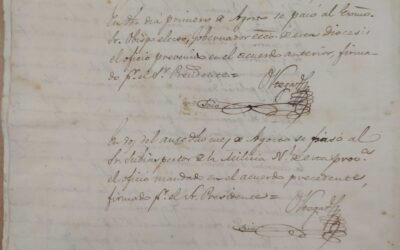 En dho dia primero de Agosto se pasó al Exmo.
Sr. Obispo electo, gobernador ecco. de esta diocesis
el oficio prevenido en el acuerdo anterior, firma-
do pr. el Sr. Presidente =
En dos del antedho mes de Agosto se pasó al
Sr. Subinspector de la Milicia Nl. de esta prova.
el oficio mandado en el acuerdo precedente,
firmado pr. el Sr. Presidente =